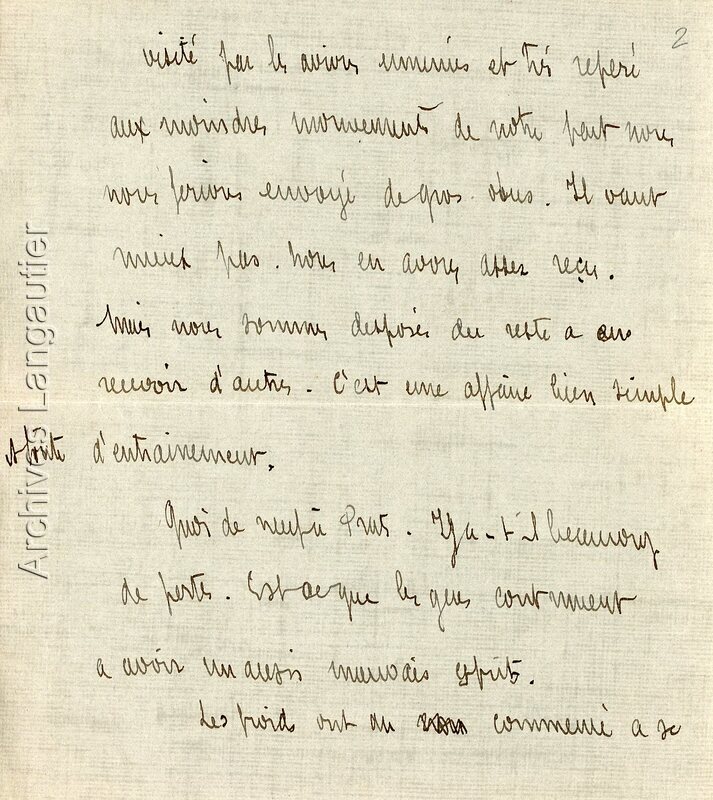 2
visité par les avions ennemis et très reperé
aux moindres mouvements de notre part nous
nous serions envoyé de gros obus. Il vaut
mieux pas. Nous en avons assez reçu.
Mais nous sommes desposés du reste a en
recevoir d'autres. C'est une affaire bien simple
d'entrainement.
Quoi de neuf à Prats. Y a-t-il beaucoup
de pertes. Est ce que les gens continuent
a avoir un aussi mauvais esprit.
Les froids ont du commencé a se
Archives Langautier